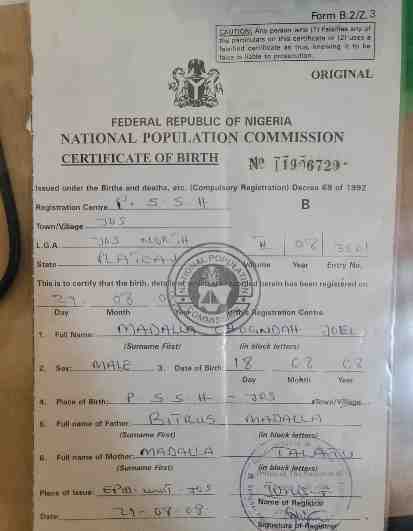 Form B.2/Z.3
CAUTION: Any person who (1) Falsifies any of
the particulars on this certificate or (2) uses a
falsified certificate as true, knowing it to be
false is liable to prosecution.
ORIGINAL
FEDERAL REPUBLIC OF NIGERIA
NATIONAL POPULATION COMMISSION
CERTIFICATE OF BIRTH
Nº 11906729
Issued under the Births and deaths, etc. (Compulsory Registration) Decree 69 of 1992
Registration Centre P. S. S. H B
Town/Village JOS
L.G.A JOS NORTH H 08
State PLATEAU Volume Year Entry No.
This is to certify that the birth, details of which are recorded herein has been registered on
29 08
Day Month Year at this Registration Centre
1. Full Name: MADALLA JOEL
(Surname First) (in block letters)
2. Sex: MALE 3. Date of Birth 18 08 08
Day Month Year
4. Place of Birth: P S S H - JOS Town/Village
5. Full name of Father: BITRUS MADALLA
(Surname First) (in block letters)
6. Full name of Mother: MADALLA TALATU
(Surname First) (in block letters)
Place of Issue: JOS
Name of Registrar
Date: 29-08-08
Signature of Registrar